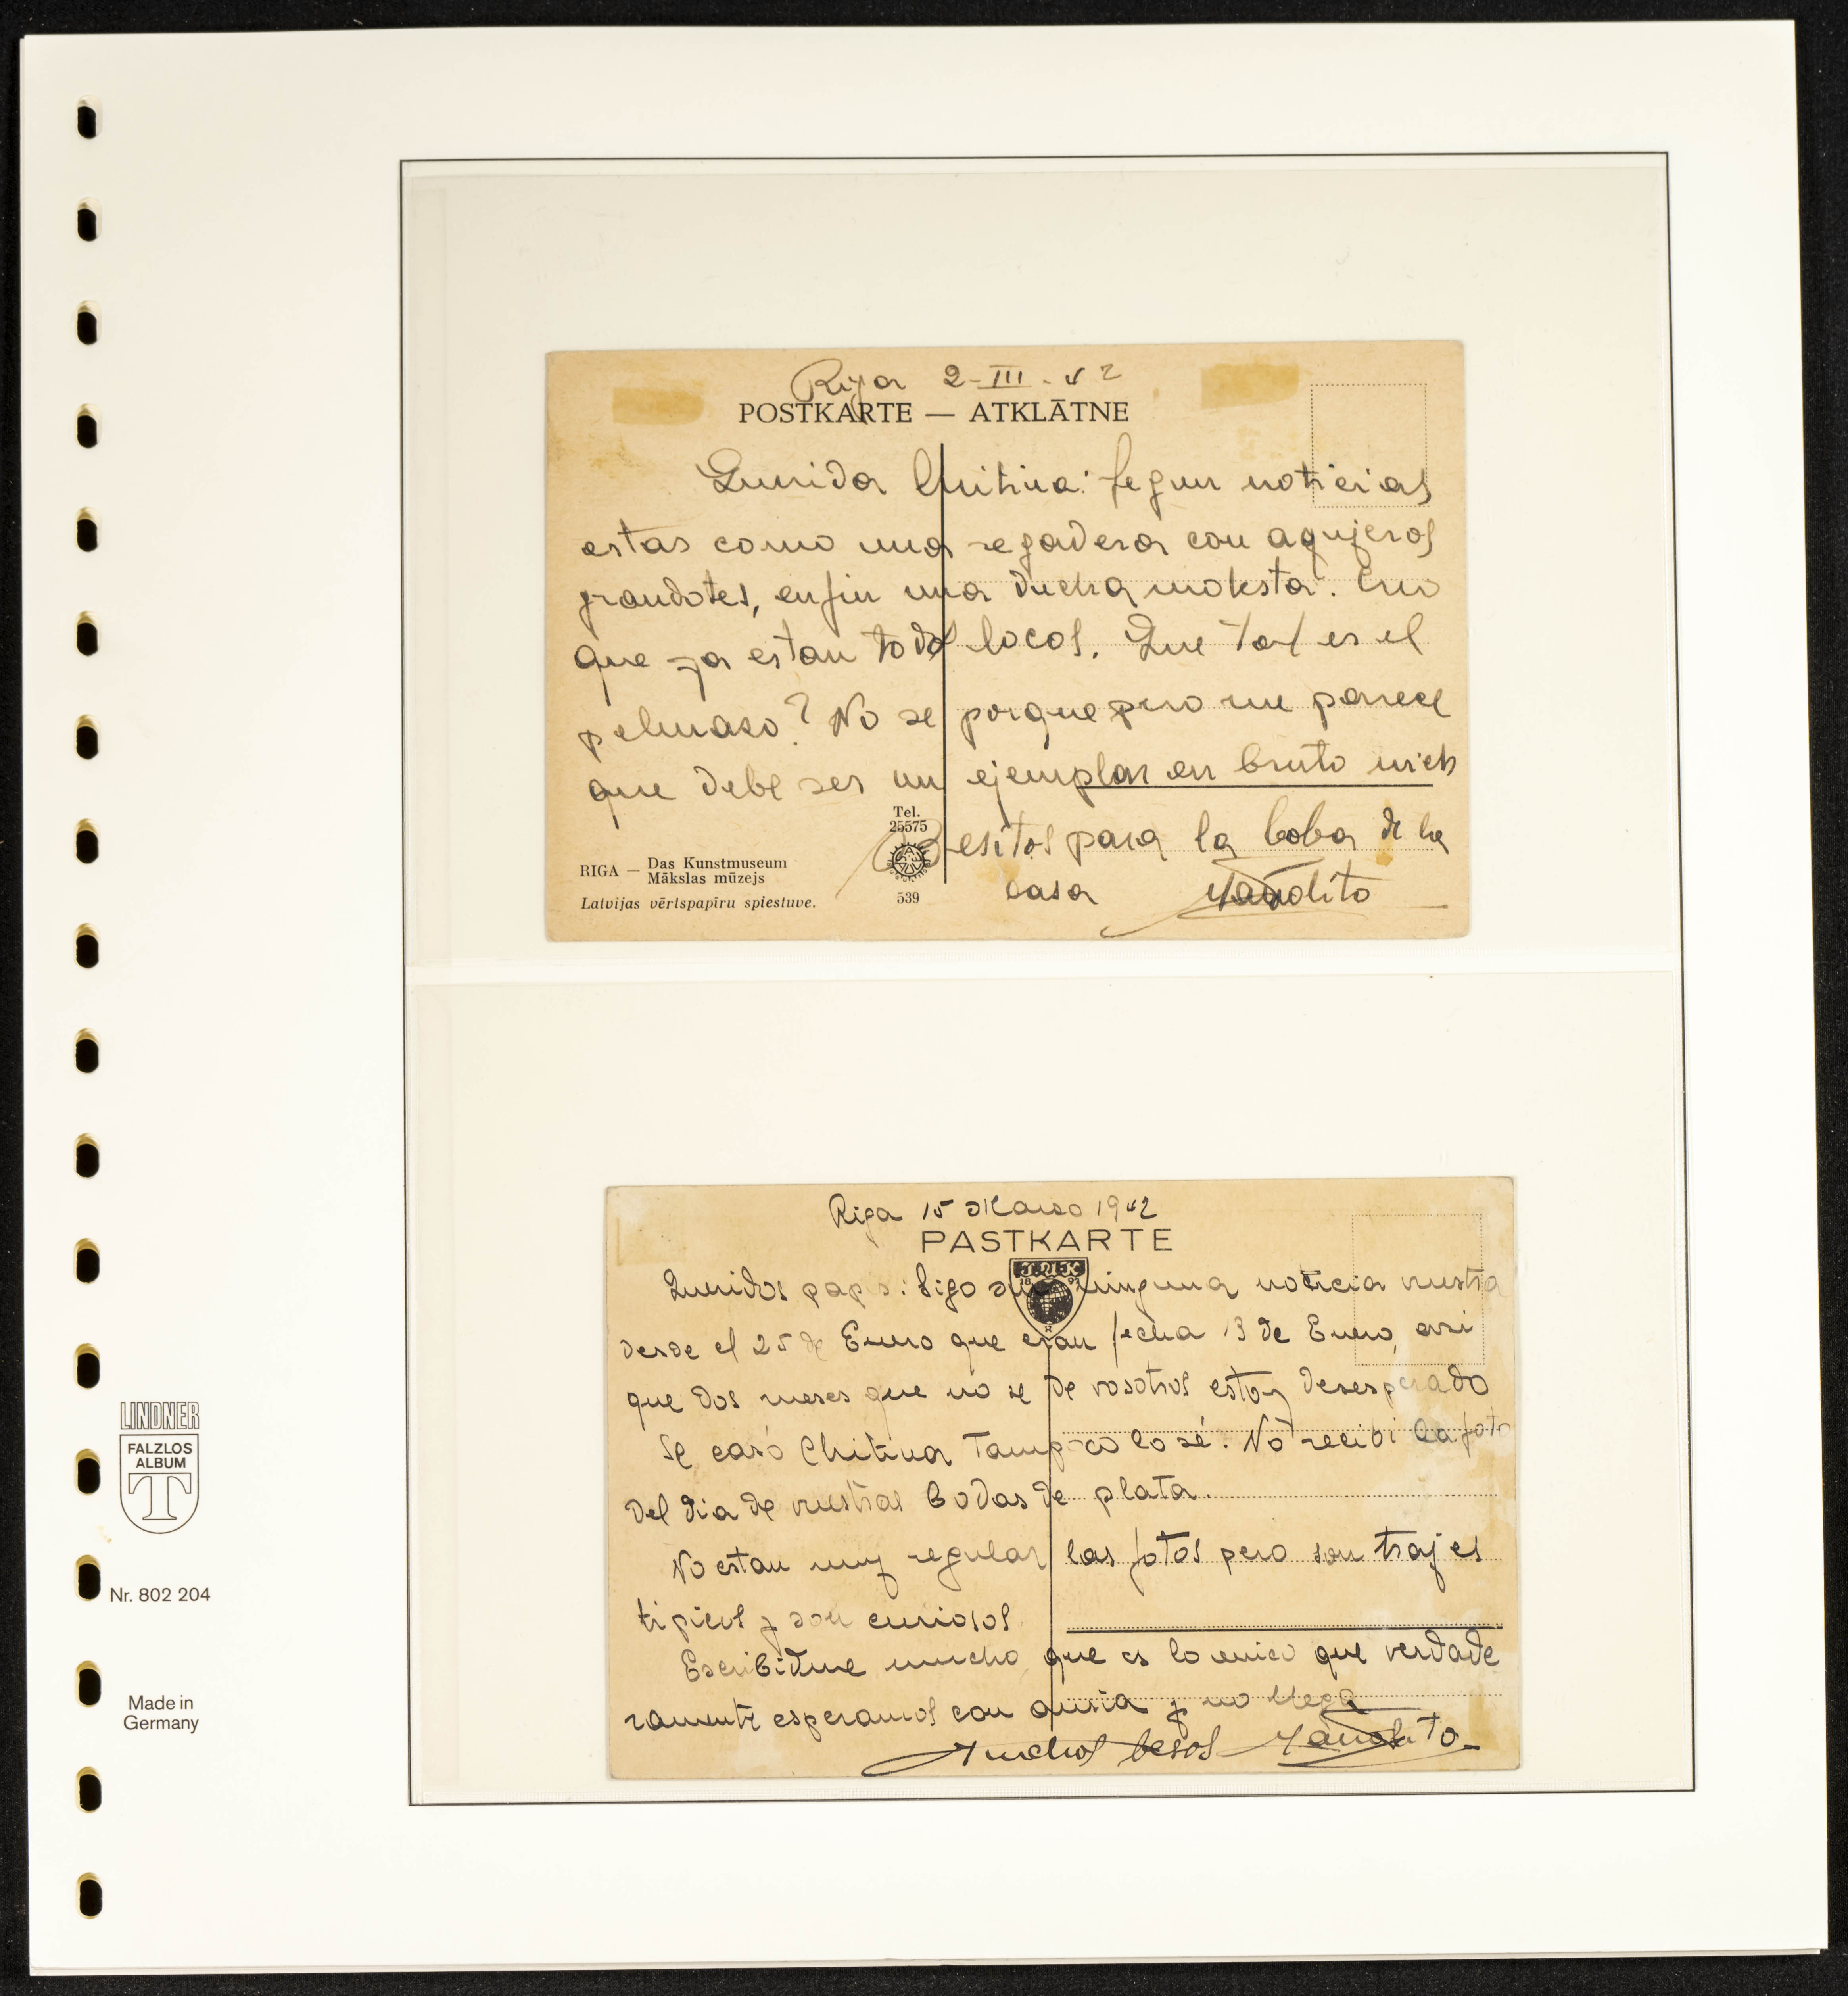 Riga 2-III-42
POSTKARTE — ATKLĀTNE
Querida Chitina: segun noticias
estas como una regadera con agujeros
grandotes, enfin una ducha molesta. Creo
que ya estan todos locos. Que tal es el
pelmaso? No se porque pero me parece
que debe ser un ejemplar en bruto
Tel.
25575
Besitos para la boba de la
RIGA — Das Kunstmuseum
Mākslas mūzejs
casa Manolito
Latvijas vērtspapīru spiestuve.
539
Riga 15 Marso 1942
PASTKARTE
J.U.K
18 92
Queridos papas: Sigo sin ninguna noticia vuestra
desde el 25 de Enero que eran fecha 13 de Enero, asi
que dos meses que no se de vosotros estoy desesperado
Se casó Chitina Tampoco lo sé. No recibi la foto
del dia de vuestras bodas de plata.
No estan muy regular las fotos pero son trajes
tipicos y son curiosos
Escribidme mucho que es lo unico que verdade
ramente esperamos con ansia y no llega
Muchos besos Manolito
LINDNER
FALZLOS
ALBUM
T
Nr. 802 204
Made in
Germany